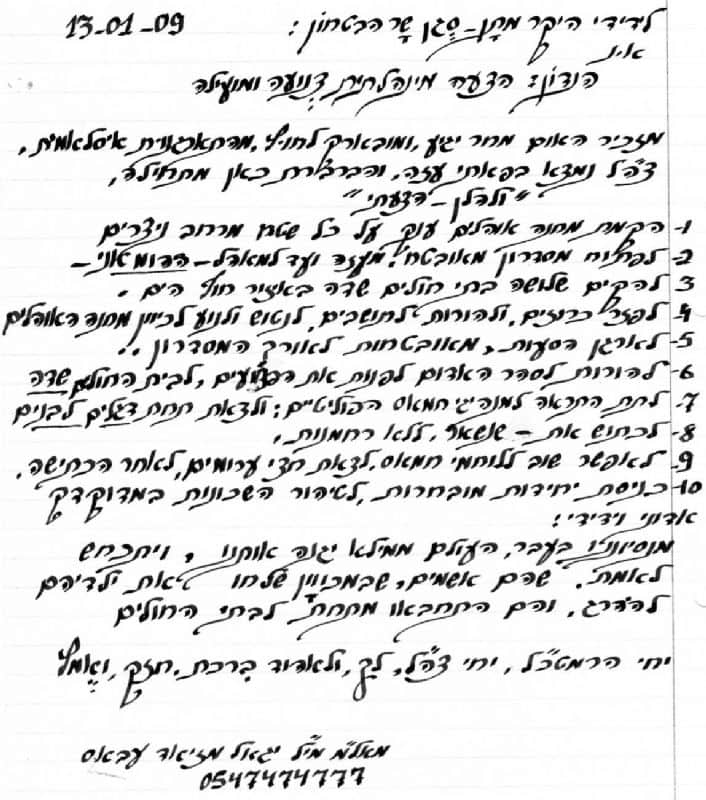 13-01-09
לידידי היקר מתן - סגן שר הבטחון :
א.נ
הנדון: הצעה מינהלתית צנועה ומועילה
מזכיר האום מחר יגיע, ומובארק לחוץ, מהתארגנות איסלאמית,
צה"ל נמצא בפאתי עזה, והברברות כאן מתחילה,
"ולהלן - הצעתי"
1- הקמת מחנה אוהלים ענק על כל שטח מרחב ניצרים
2- לפתוח מסדרון מאובטח, מעזה ועד למאהל - ההומאני -
3- להקים שלושה בתי חולים שדה באיזור חוף הים .
4- לפזר כרוזים, ולהורות לתושבים, לנטוש ולנוע לכיוון מחנה האוהלים
5- לארגן הסעות, מאובטחות לאורך המסדרון ..
6- להורות לסהר האדום לפנות את הפצועים, לבית החולים שדה
7- לתת התראה למנהיגי חמאס הפוליטיים; ולצאת תחת דגלים לבנים
8- לכתוש את - שנשאר, ללא רחמנות,
9- לאפשר שוב ללוחמי חמאס, לצאת חצי ערומים, לאחר הכתישה.
10- כניסת יחידות מובחרות, לטיהור השכונות במדוקדק
אדוני וידידי:
מנסיוננו בעבר, העולם ממילא יגנה אותנו , ויתכחש
לאמת. שהם אשמים, שבמכוון שלחו את ילדיהם
להורג, והם התחבאו מתחת לבתי החולים
יחי הרמטכ"ל, יחי צה"ל, לך, ולאהוד ברכת, חזק, ואמץ
מאל"מ מי"ל יגאל מזיאד עבאס
0547474777